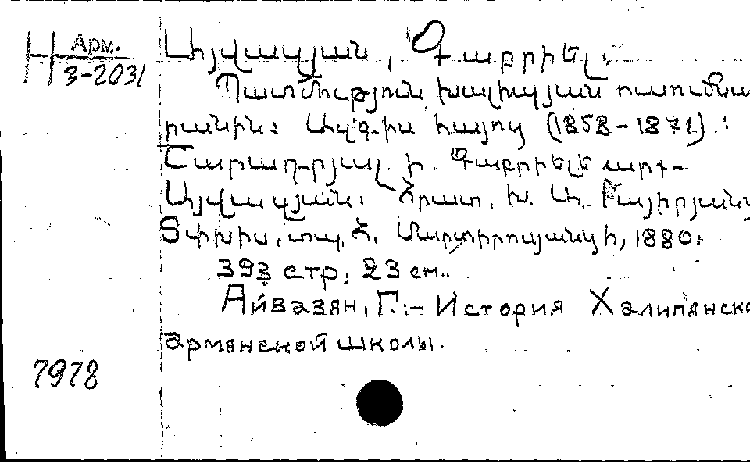 Н Арм.
3-2031
Այվազյան, Գաբրիել.
Պատմություն խալիպյան ուսումնա
րանին: Ազգիս հայոց (1858-1871).:
Շարադրյալ ի Գաբրիելե արք-
Այվազյան: Հրատ. Խ. Ա.
Տփխիս, տպ. Հ. Մարտիրոսյանցի, 1880.
393 стр. 23 см..
Айвазян, Г.- История Халипянско
армянской школы.
7978